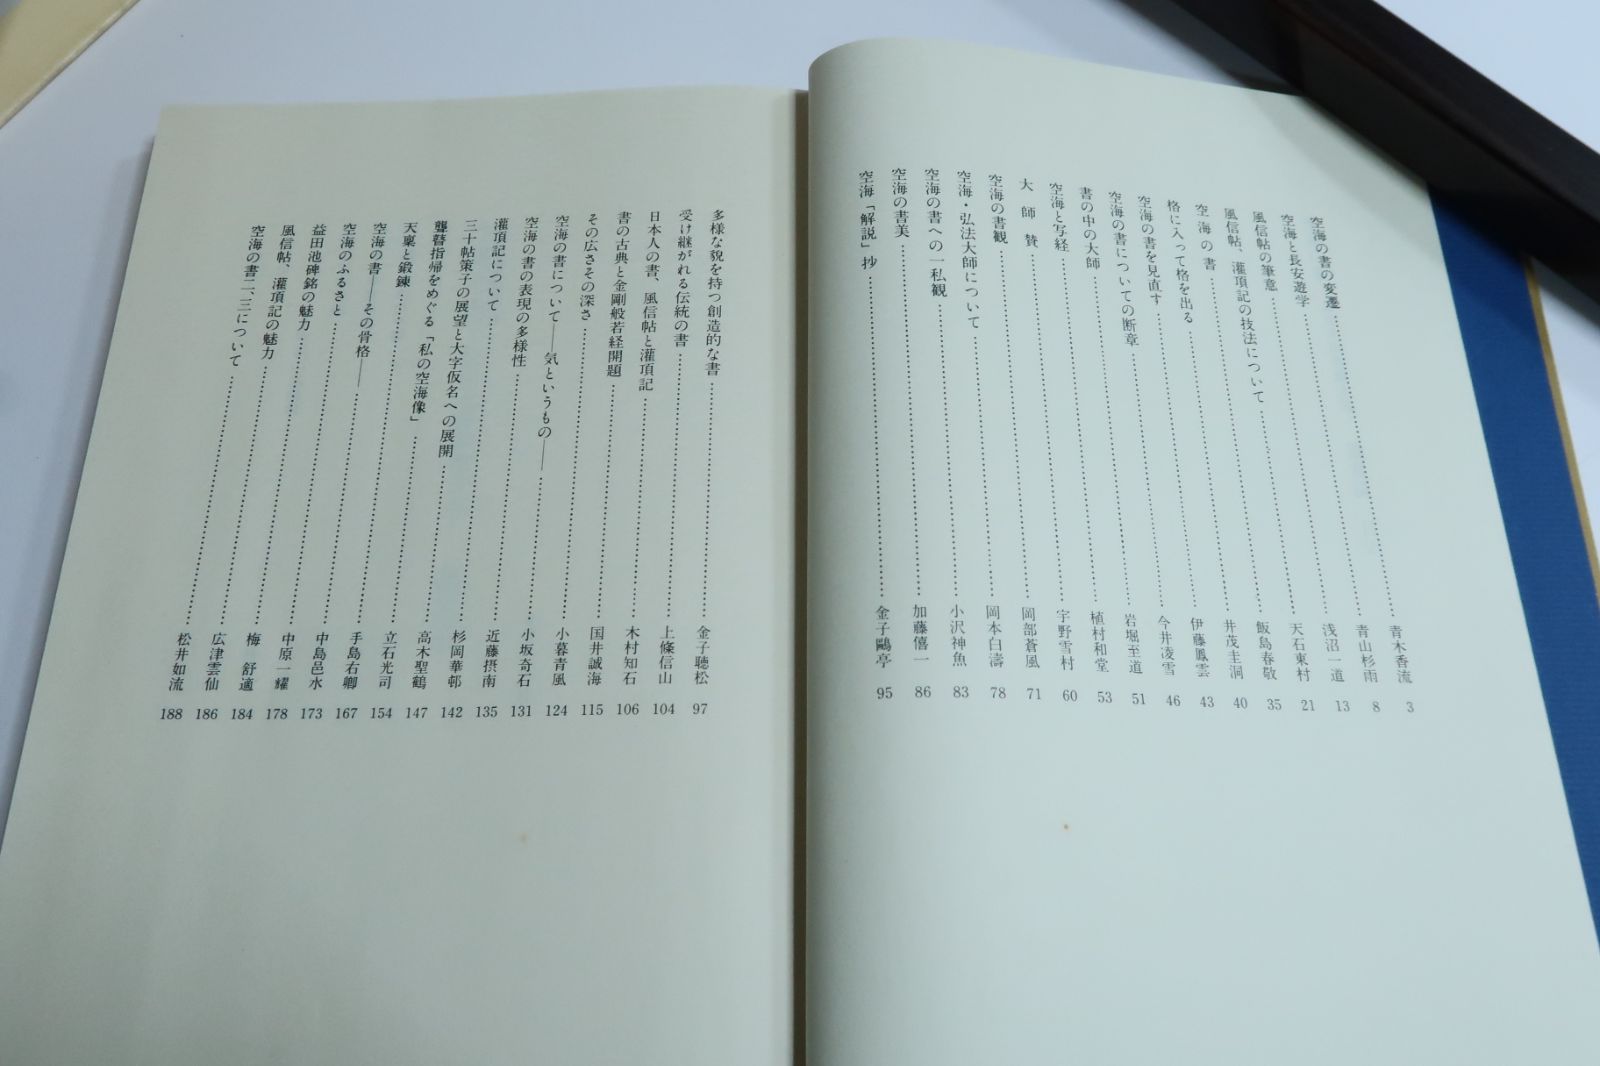 空海の書の変遷……青木香流 3
空海と長安遊学……青山杉雨 8
風信帖の筆意……浅沼一道 13
風信帖、灌頂記の技法について……天石東村 21
空海の書……飯島春敬 35
格に入って格を出る……井茂圭洞 40
空海の書を見直す……伊藤鳳雲 43
空海の書についての断章……今井凌雪 46
書の中の大師……岩堀至道 51
空海と写経……植村和堂 53
大師賛……宇野雪村 60
空海の書観……岡部蒼風 71
空海・弘法大師について……岡本白濤 78
空海の書への一私観……小沢神魚 83
空海の書美……加藤僖一 86
空海「解説」抄……金子鷗亭 95
多様な貌を持つ創造的な書……金子聴松 97
受け継がれる伝統の書……上條信山 104
日本人の書、風信帖と灌頂記……木村知石 106
書の古典と金剛般若経開題……国井誠海 115
その広さその深さ……小暮青風 124
空海の書について――気というもの――……小坂奇石 131
空海の書の表現の多様性……近藤摂南 135
灌頂記について……杉岡華邨 142
三十帖策子の展望と大字仮名への展開……高木聖鶴 147
聾瞽指帰をめぐる「私の空海像」……立石光司 154
天稟と鍛錬……手島右卿 167
空海の書――その骨格――……中島邑水 173
空海のふるさと……中原一耀 178
益田池碑銘の魅力……梅舒適 184
風信帖、灌頂記の魅力……広津雲仙 186
空海の書二、三について……松井如流 188